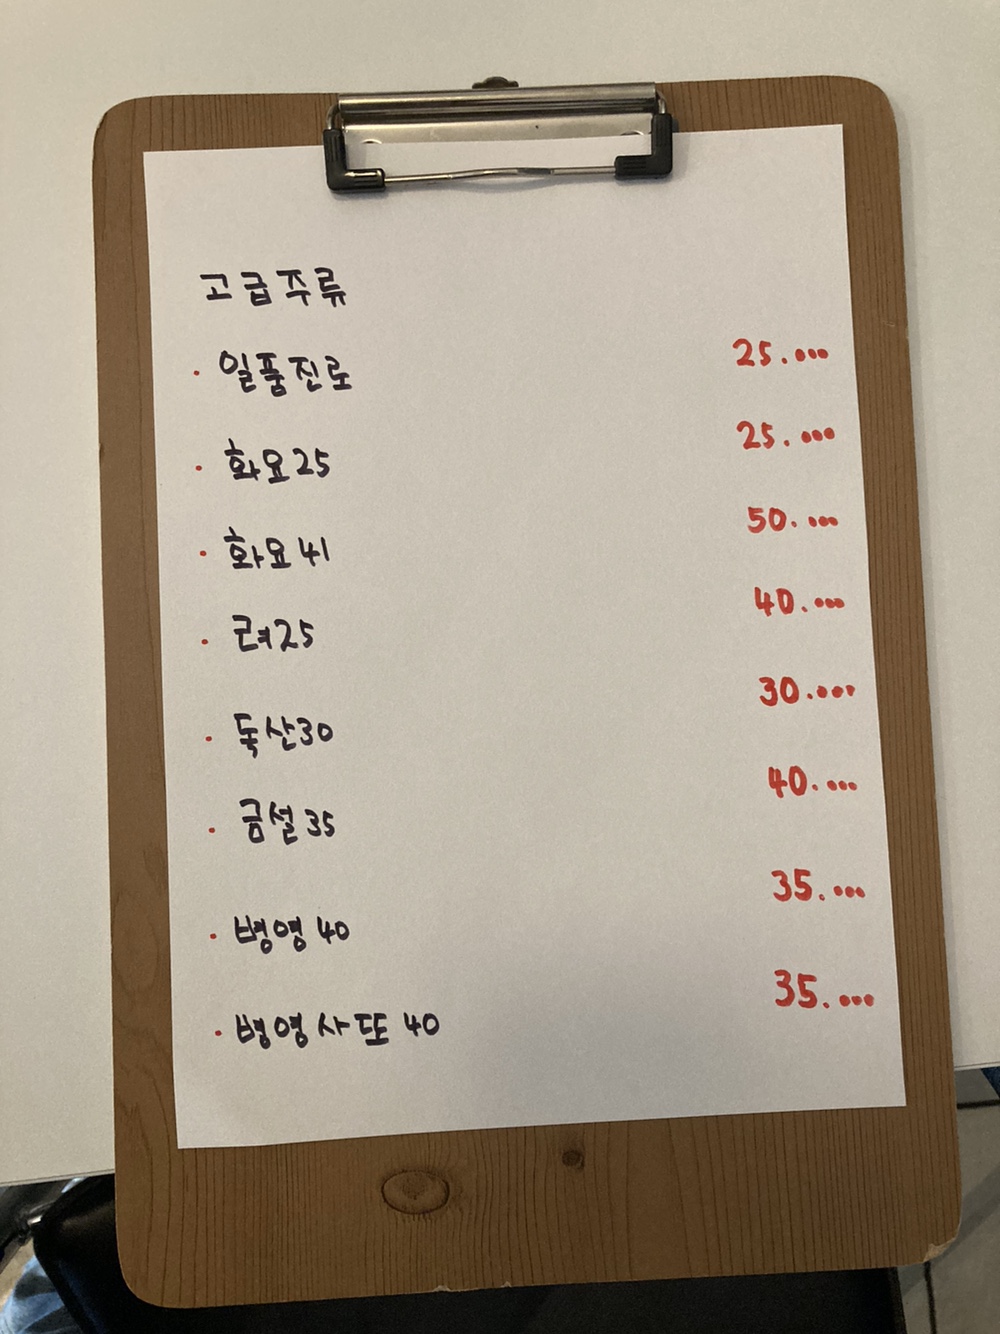 고급주류
· 일품진로 25.000
· 화요25 25.000
· 화요41 50.000
· 려25 40.000
· 독산30 30.000
· 금설35 40.000
· 병영40 35.000
· 병영사또40 35.000